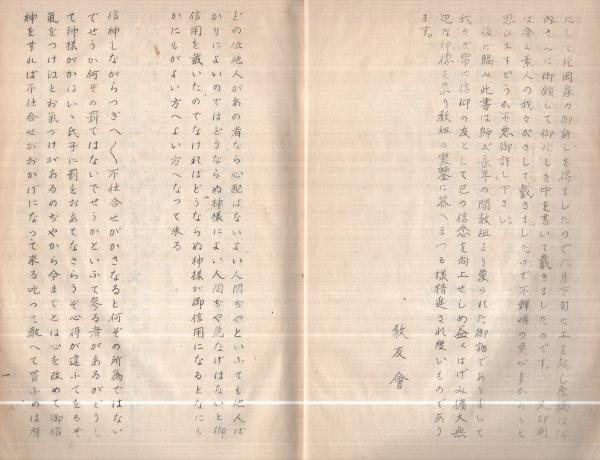 にして片岡家の御許しを得ましたので六月下旬に工を起し原稿は河
内さんに御願して御忙しき中を書いて戴きましたのです。又印刷
は全く素人の我々がさして戴きましたので不鮮明の点が多からうと
思ひますどうか不悪御許し下さい。
後に臨み此書は師が長年の間教祖より蒙られた御話でありまして
我々が常に信仰の友として己の信念を向上せしめ益々はげみ擴大無
辺な神徳を蒙り教祖の霊璽に答へまつる様精進され度いものであり
ます。
教友會
どの位他人があの者なら心配はないよい人間ぢやといふても他人ば
かりによいのではどうならぬ神様によい人間ぢや危なげはないと御
信用を戴いたのでなければどうならぬ神様が御信用になるとなにも
かにもがよい方へよい方へなつて来る
信神しながらつぎへ〱不仕合せがかさなると何ぞの所為ではない
でせうか何ぞの罰ではないでせうかといふて参る者があるがどうし
て神様がかはいゝ氏子に罰をおあてなさらうぞ心得が違ふてをるぞ
氣をつけよとお氣づけがあるのぢやから今までとは心を改めて御信
神をすれば不仕合せがおかげになつて来る叱つて教へて貰ふのは有
一